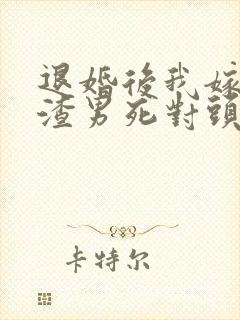 退婚後我嫁
渣男死對頭
卡特尔